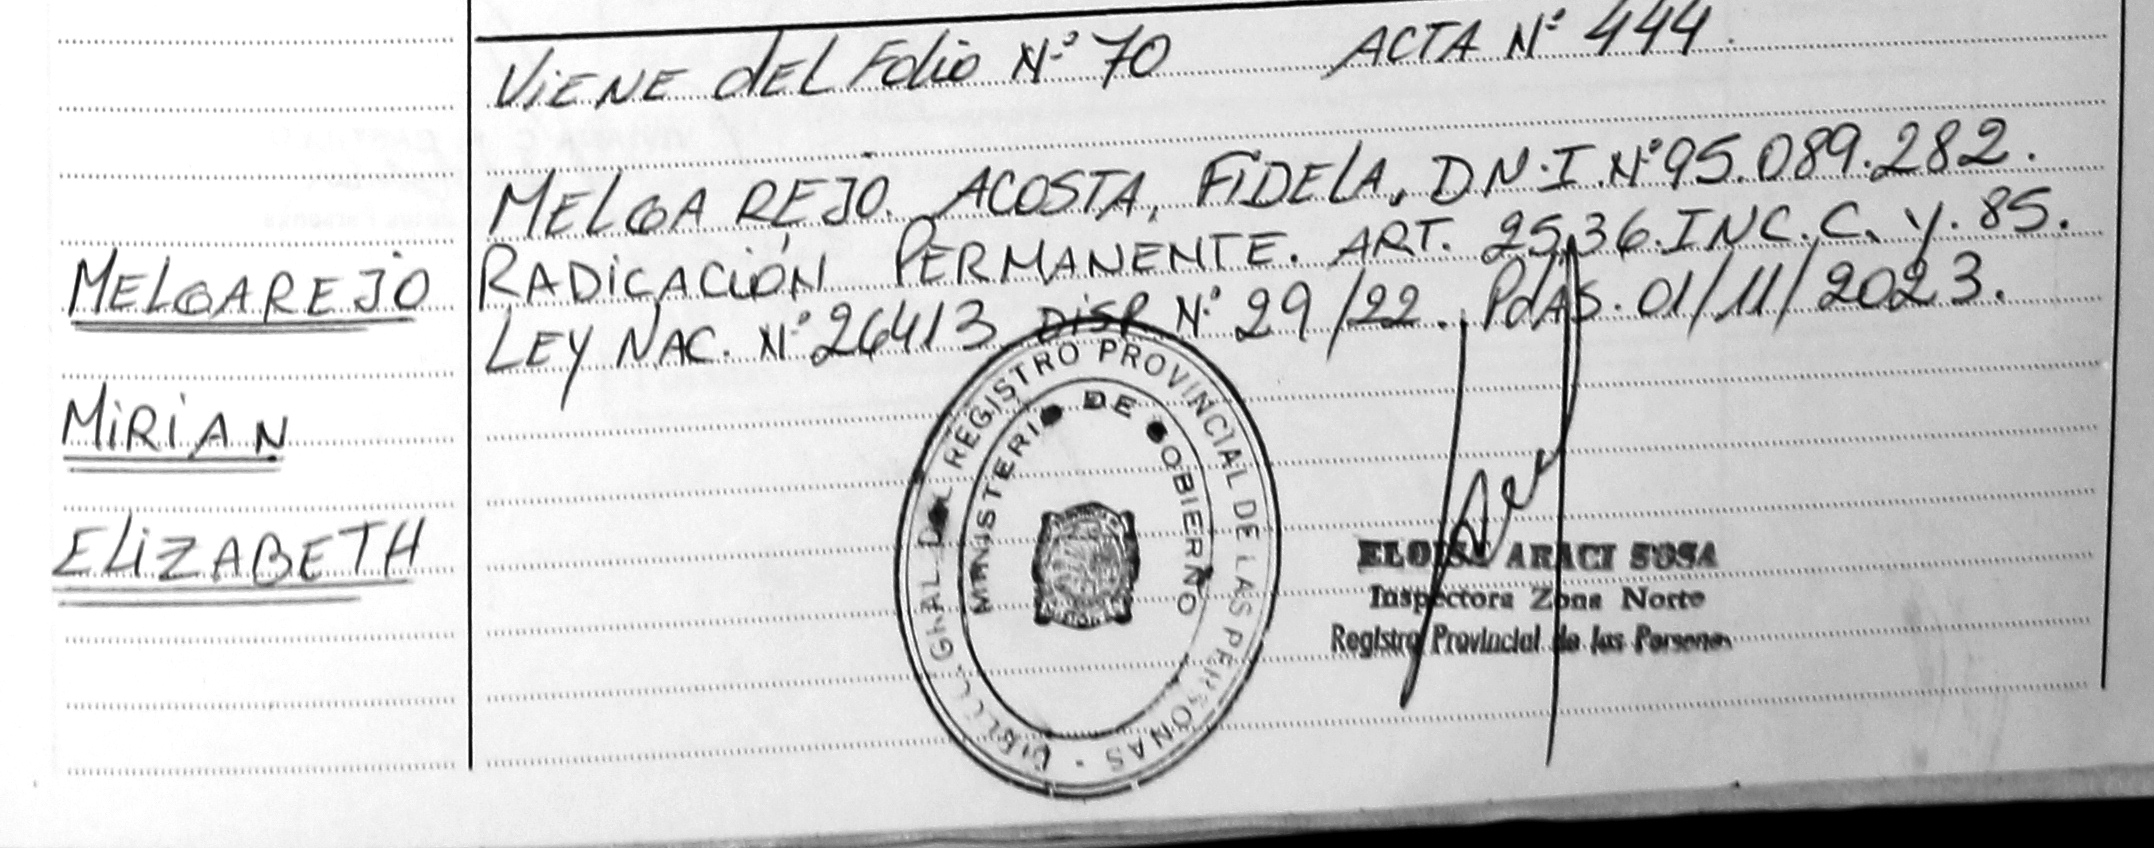 ViENE dEL Folio Nº 70 ACTA Nº 444.
MELGAREJO. ACOSTA, FiDELA, D.N.I. Nº 95.089.282.
RADiCACiÓN PERMANENTE. ART. 25,36. INC. C. y. 85.
LEY NAC. Nº 26413. DiSP. Nº 29/22. PdAS. 01/11/2023.
MELGAREJO
MiRiAN
ELiZABETH
GRAL DEL REGISTRO PROVINCIAL DE LAS PERSONAS -
MINISTERIO DE GOBIERNO
ELOISA ARACI SOSA
Inspectora Zona Norte
Registro Provincial de las Personas